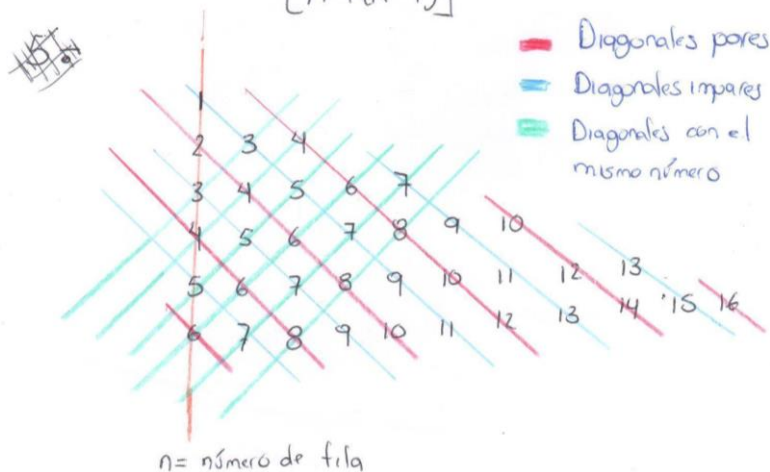 Diagonales pares
Diagonales impares
Diagonales con el
mismo número
1
2 3 4
3 4 5 6 7
4 5 6 7 8 9 10
5 6 7 8 9 10 11 12 13
6 7 8 9 10 11 12 13 14 15 16
n= número de fila